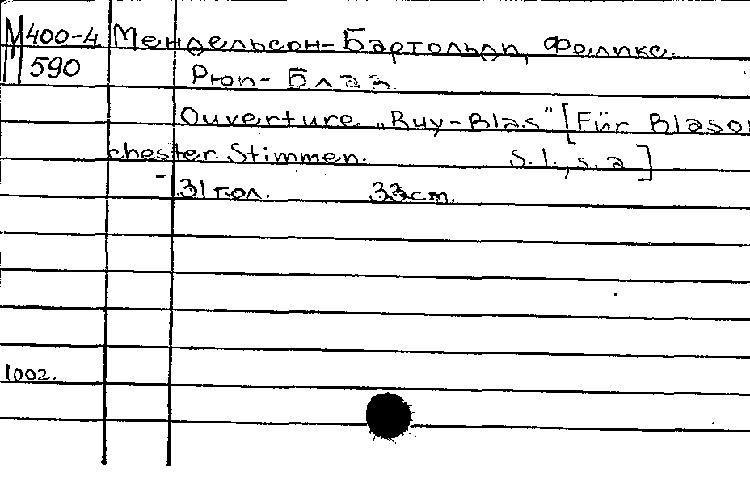 М 400-4 Мендельсон-Бартольди, Феликс.
590 Рюи-Блаз
Ouverture „Ruy-Blas" [Für Blasor
chester Stimmen. S.l., s.a]
31 гол. 33 cm.
1002.